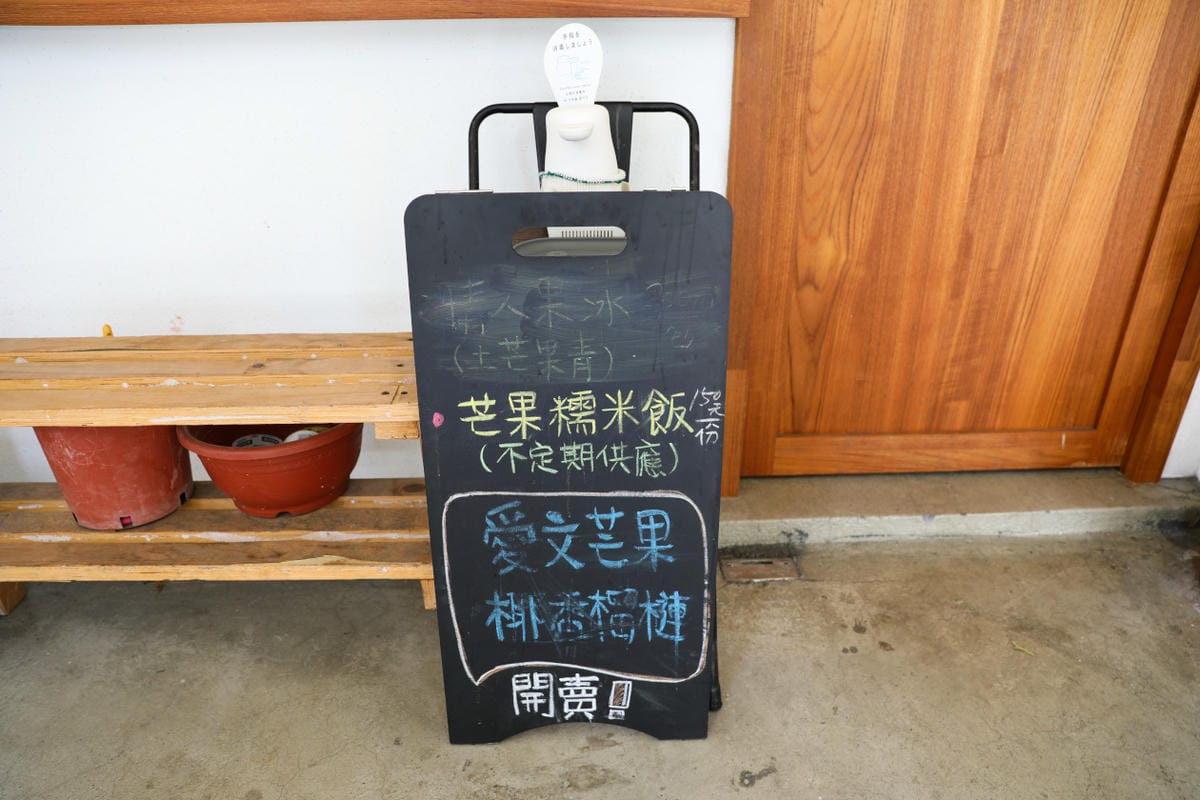 手指を
消毒しましょう
情人果冰
(土芒果青)
芒果糯米飯 150元一份
(不定期供應)
愛文芒果
椰香榴槤
開賣!